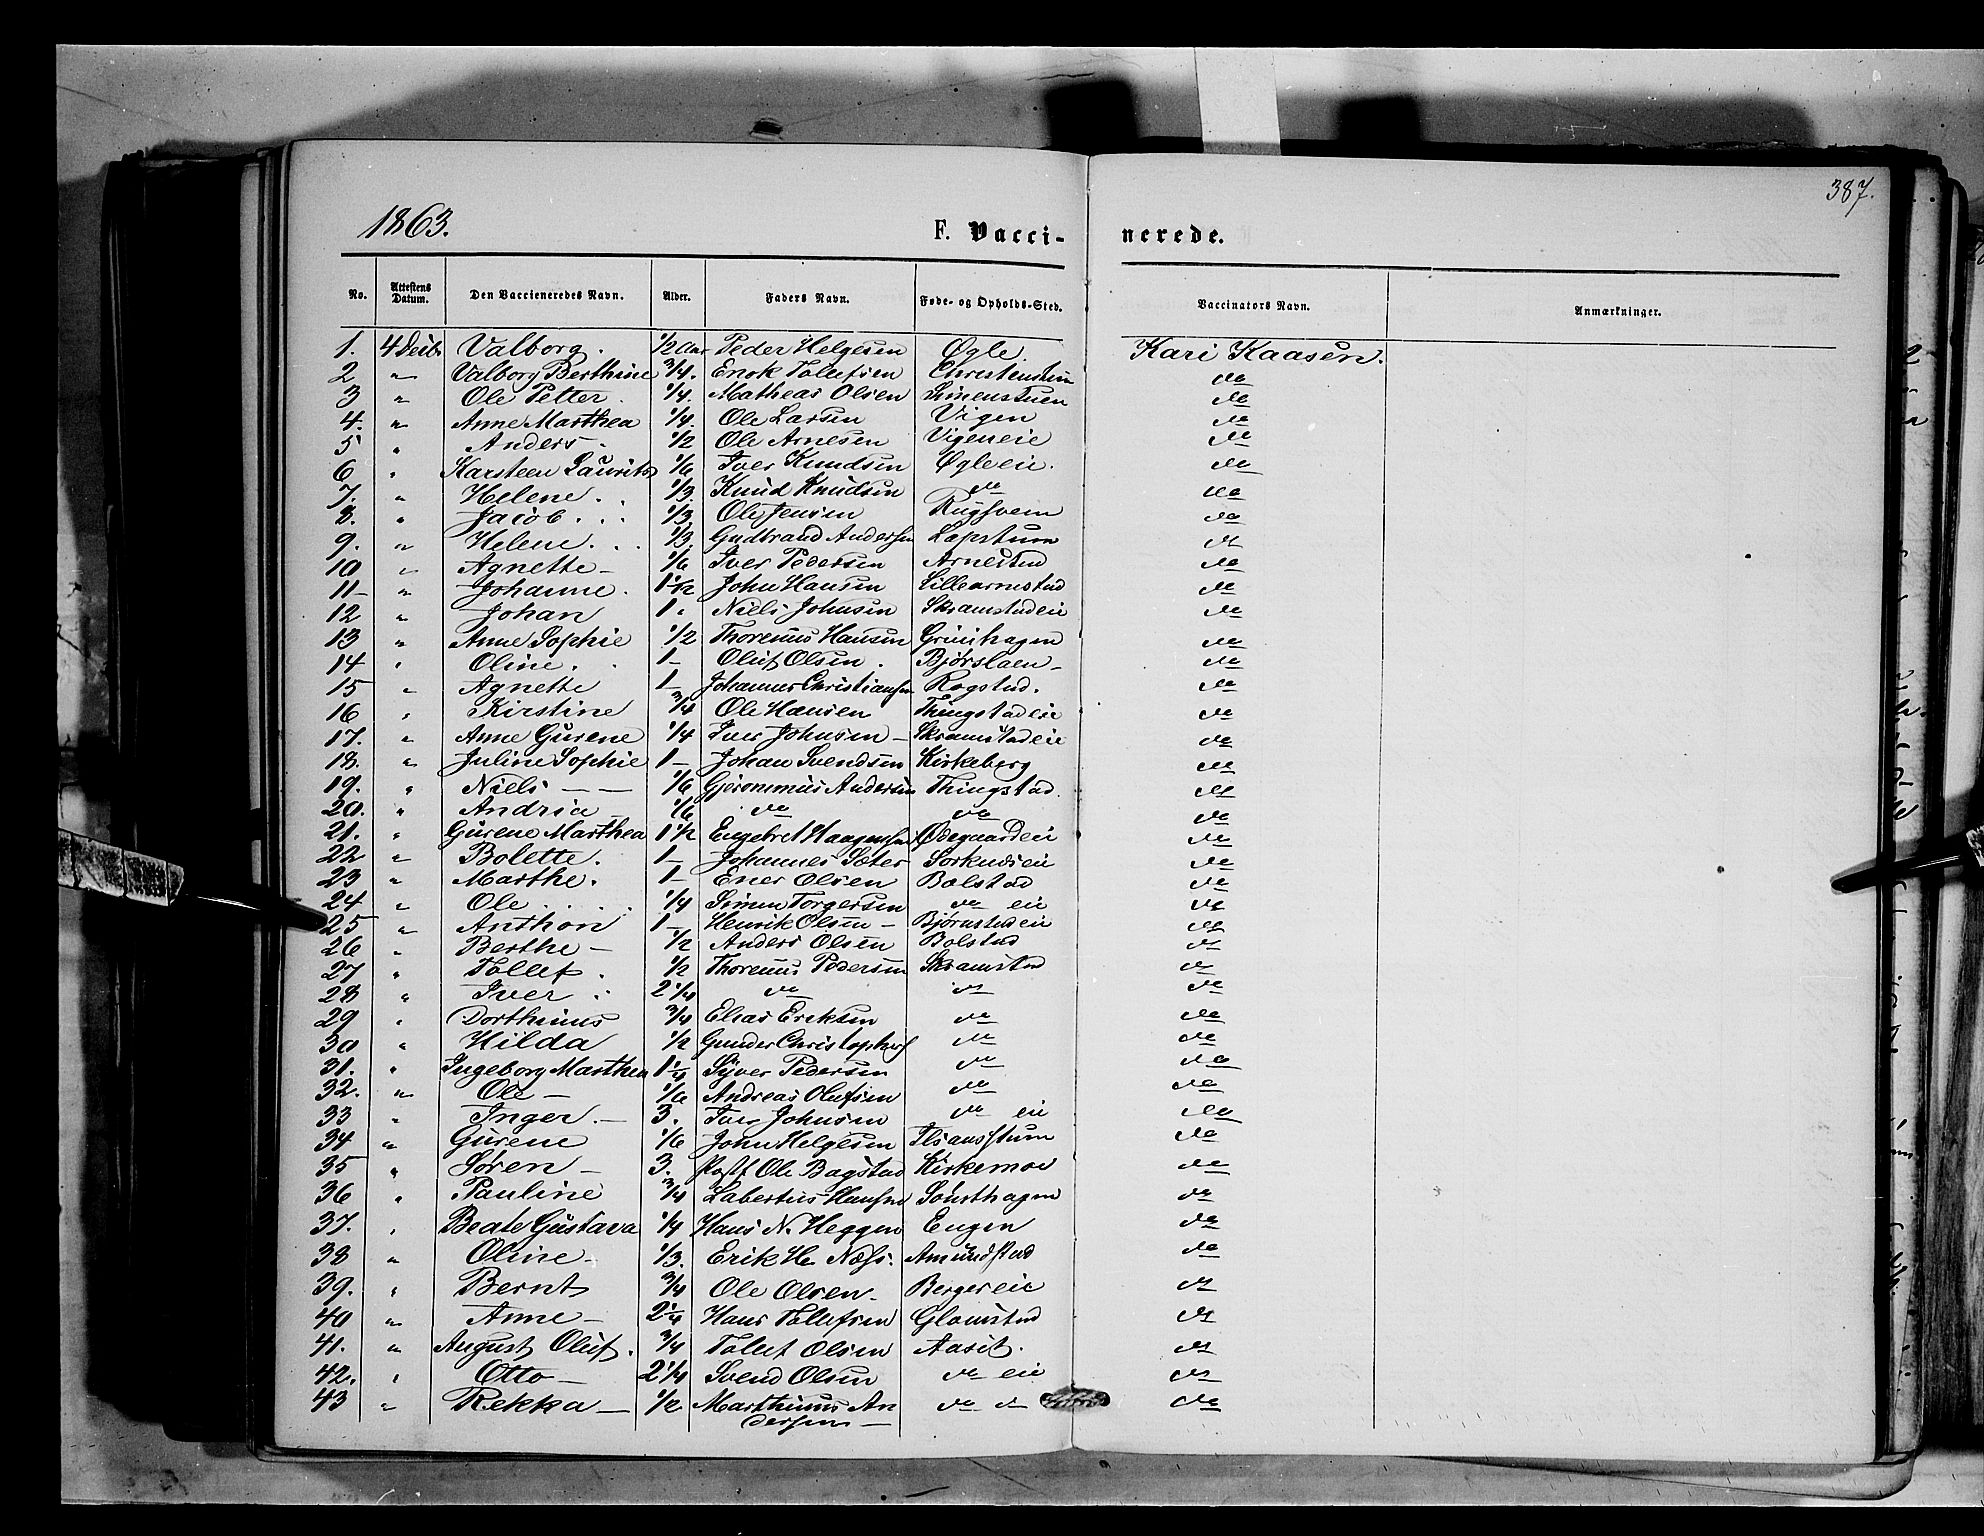 387.
1863.
F. Vaccinerede.
No. Attestens Datum. Den Vaccieneredes Navn. Alder. Faders Navn. Føde- og Opholds-Sted. Vaccinators Navn. Anmærkninger.
1. 4 Valborg. 1/2 Aar Peder Helgesen Øgle. Kari Kaasen.
2 " Valborg Berthine 3/4. Enok Tollefsen Christenstuen do
3 " Ole Petter. 1/4. Matheas Olsen Simenstuen do
4. " Anne Marthea 1/4. Ole Larsen Vigen do
5 " Anders. 1/2 Ole Arnesen Vigeneie do
6 " Karsteen Laurits 1/6 Iver Knudsen Øgleeie. do
7. " Helene. 1/3. Knud Knudsen do do
8. " Jacob. 1/3. Ole Jensen Rugsveen do
9. " Helene. 1/3. Gudbrand Andersen do
10 " Agnette 1/6 Iver Pedersen Arnestad do
11 " Johanne. John Hansen Lillearnestad do
12 " Johan 1. Niels Johnsen Skramstadeie do
13 " Anne Sophie 1/2 Thorenus Hansen Grünhagen do
14 " Oline. 1 Oluf Olsen. Bjørslaen do
15 " Agnette 1 Johannes Christiansen Rogstad. do
16 " Kirstine 3/4 Ole Hansen Thingstadeie do
17. " Anne Gurene 1/4 Iver Johnsen Skramstadeie do
18. " Juline Sophie 1 Johan Svendsen Kirkeberg do
19. " Niels 1/6 Gjeronimus Andersen Thingstad. do
20. " Andria 1/6 do do do
21. " Gurene Marthea 1 1/2 Engebret Haagensen Ødegaardeie do
22 " Bolette. 1 Johannes Sæter Sorknæseie do
23 " Marthe. 1 Ener Olsen Bolstad do
24 " Ole 1/4 Simen Torgersen do eie do
25 " Anthon 1 Henrik Olsen Bjørnstadeie do
26 " Berthe 1/2 Anders Olsen Bolstad do
27 " Tollef. 1/2 Thorenus Pedersen Skramstad do
28 " Iver 2 1/4 do do do
29 " Dorthinus 3/4 Elias Eriksen do do
30 " Hilda 1/2 Gunder Christophers do do
31. " Ingeborg Marthea 1 1/4 Syver Pedersen do do
32. " Ole 1/6 Andreas Olufsen do do
33 " Inger. 3. Iver Johnsen do eie do
34 " Gurene 1/6 John Helgesen do
35 " Søren 3. Ole Bagstad Kirkemoe do
36 " Pauline 3/4 Labertus Hansen Sønsthagen do
37. " Beate Gustava 1/4 Hans N. Heggen Engen do
38 " Oline 1/3. Erik H. Næss. Amundstad do
39. " Bernt 3/4 Ole Olsen. Bergereie do
40 " Anne 2 1/4 Hans Tollefsen Glomstad do
41. " August Oluf. 3/4 Tollef Olsen Aaset. do
42. " Otto 2 1/4 Svend Olsen do eie do
43 " Rekka 1/2 Marthinus An do do do
dersen